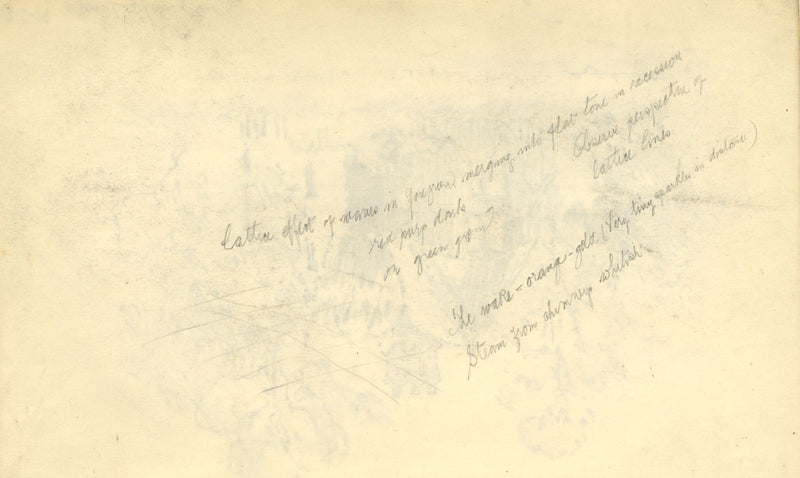 Lattice effect of waves in foregrnd merging into flat tone in recession
Observe perspective of
lattice lines
red purp darks
on green
The wake = orange-gold (Very tiny sparkles in distance)
Steam from chimneys whitish